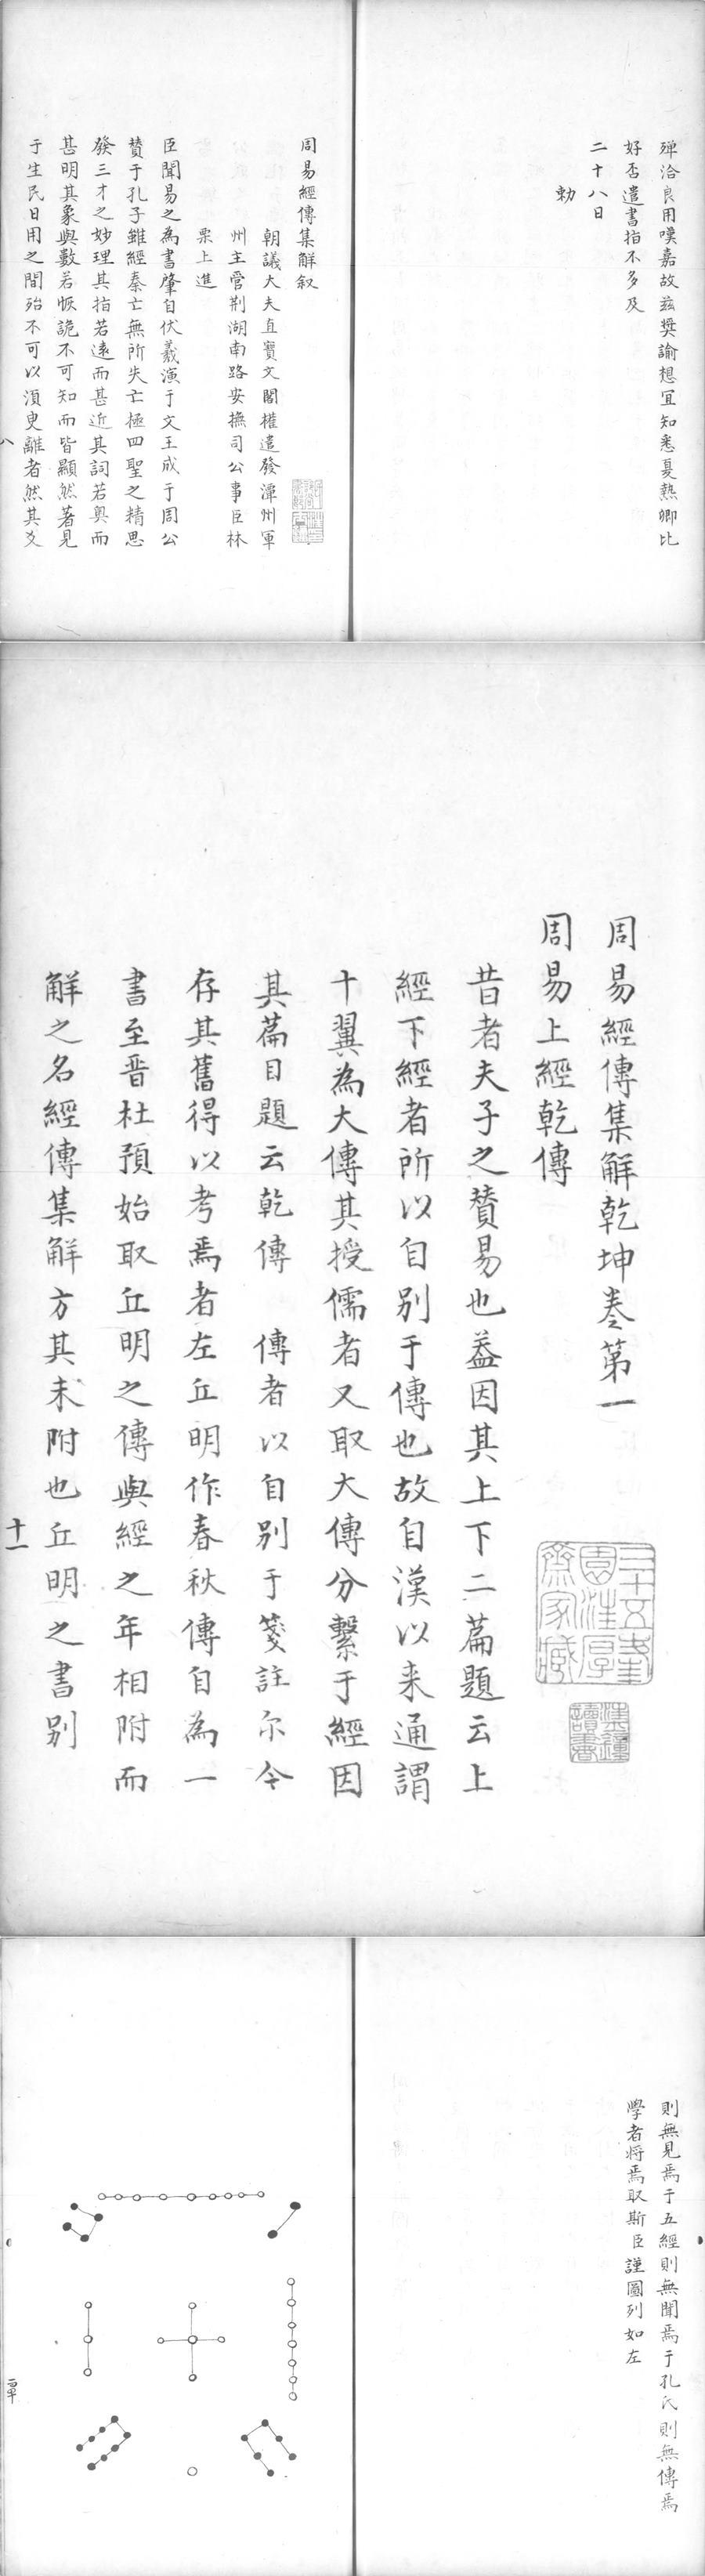 殫洽良用嘆嘉故茲奬諭想宜知悉夏熱卿比
好否遣書指不多及
二十八日
勅
周易經傳集解叙
朝議大夫直寶文閣權遣發潭州軍
州主管荆湖南路安撫司公事臣林
栗上進
臣聞易之為書肇自伏羲演于文王成于周公
賛于孔子雖經秦亡無所失亡極四聖之精思
發三才之妙理其指若逺而甚近其詞若奥而
甚明其象與數若恢詭不可知而皆顯然著見
于生民日用之間殆不可以湏臾離者然其爻
八
周易經傳集解乾坤卷第一
周易上經乾傳
昔者夫子之賛易也葢因其上下二篇題云上
經下經者所以自别于傳也故自漢以来通謂
十翼為大傳其授儒者又取大傳分繫于經因
其篇目題云乾傳 傳者以自别于箋註尔今
存其舊得以考焉者左丘明作春秋傳自為一
書至晋杜預始取丘明之傳與經之年相附而
解之名經傳集解方其未附也丘明之書别
十一
三十五峯
園汪厚
齋家藏
漢鍾
讀書
則無見焉于五經則無聞焉于孔氏則無傳焉
學者将焉取斯臣謹圖列如左